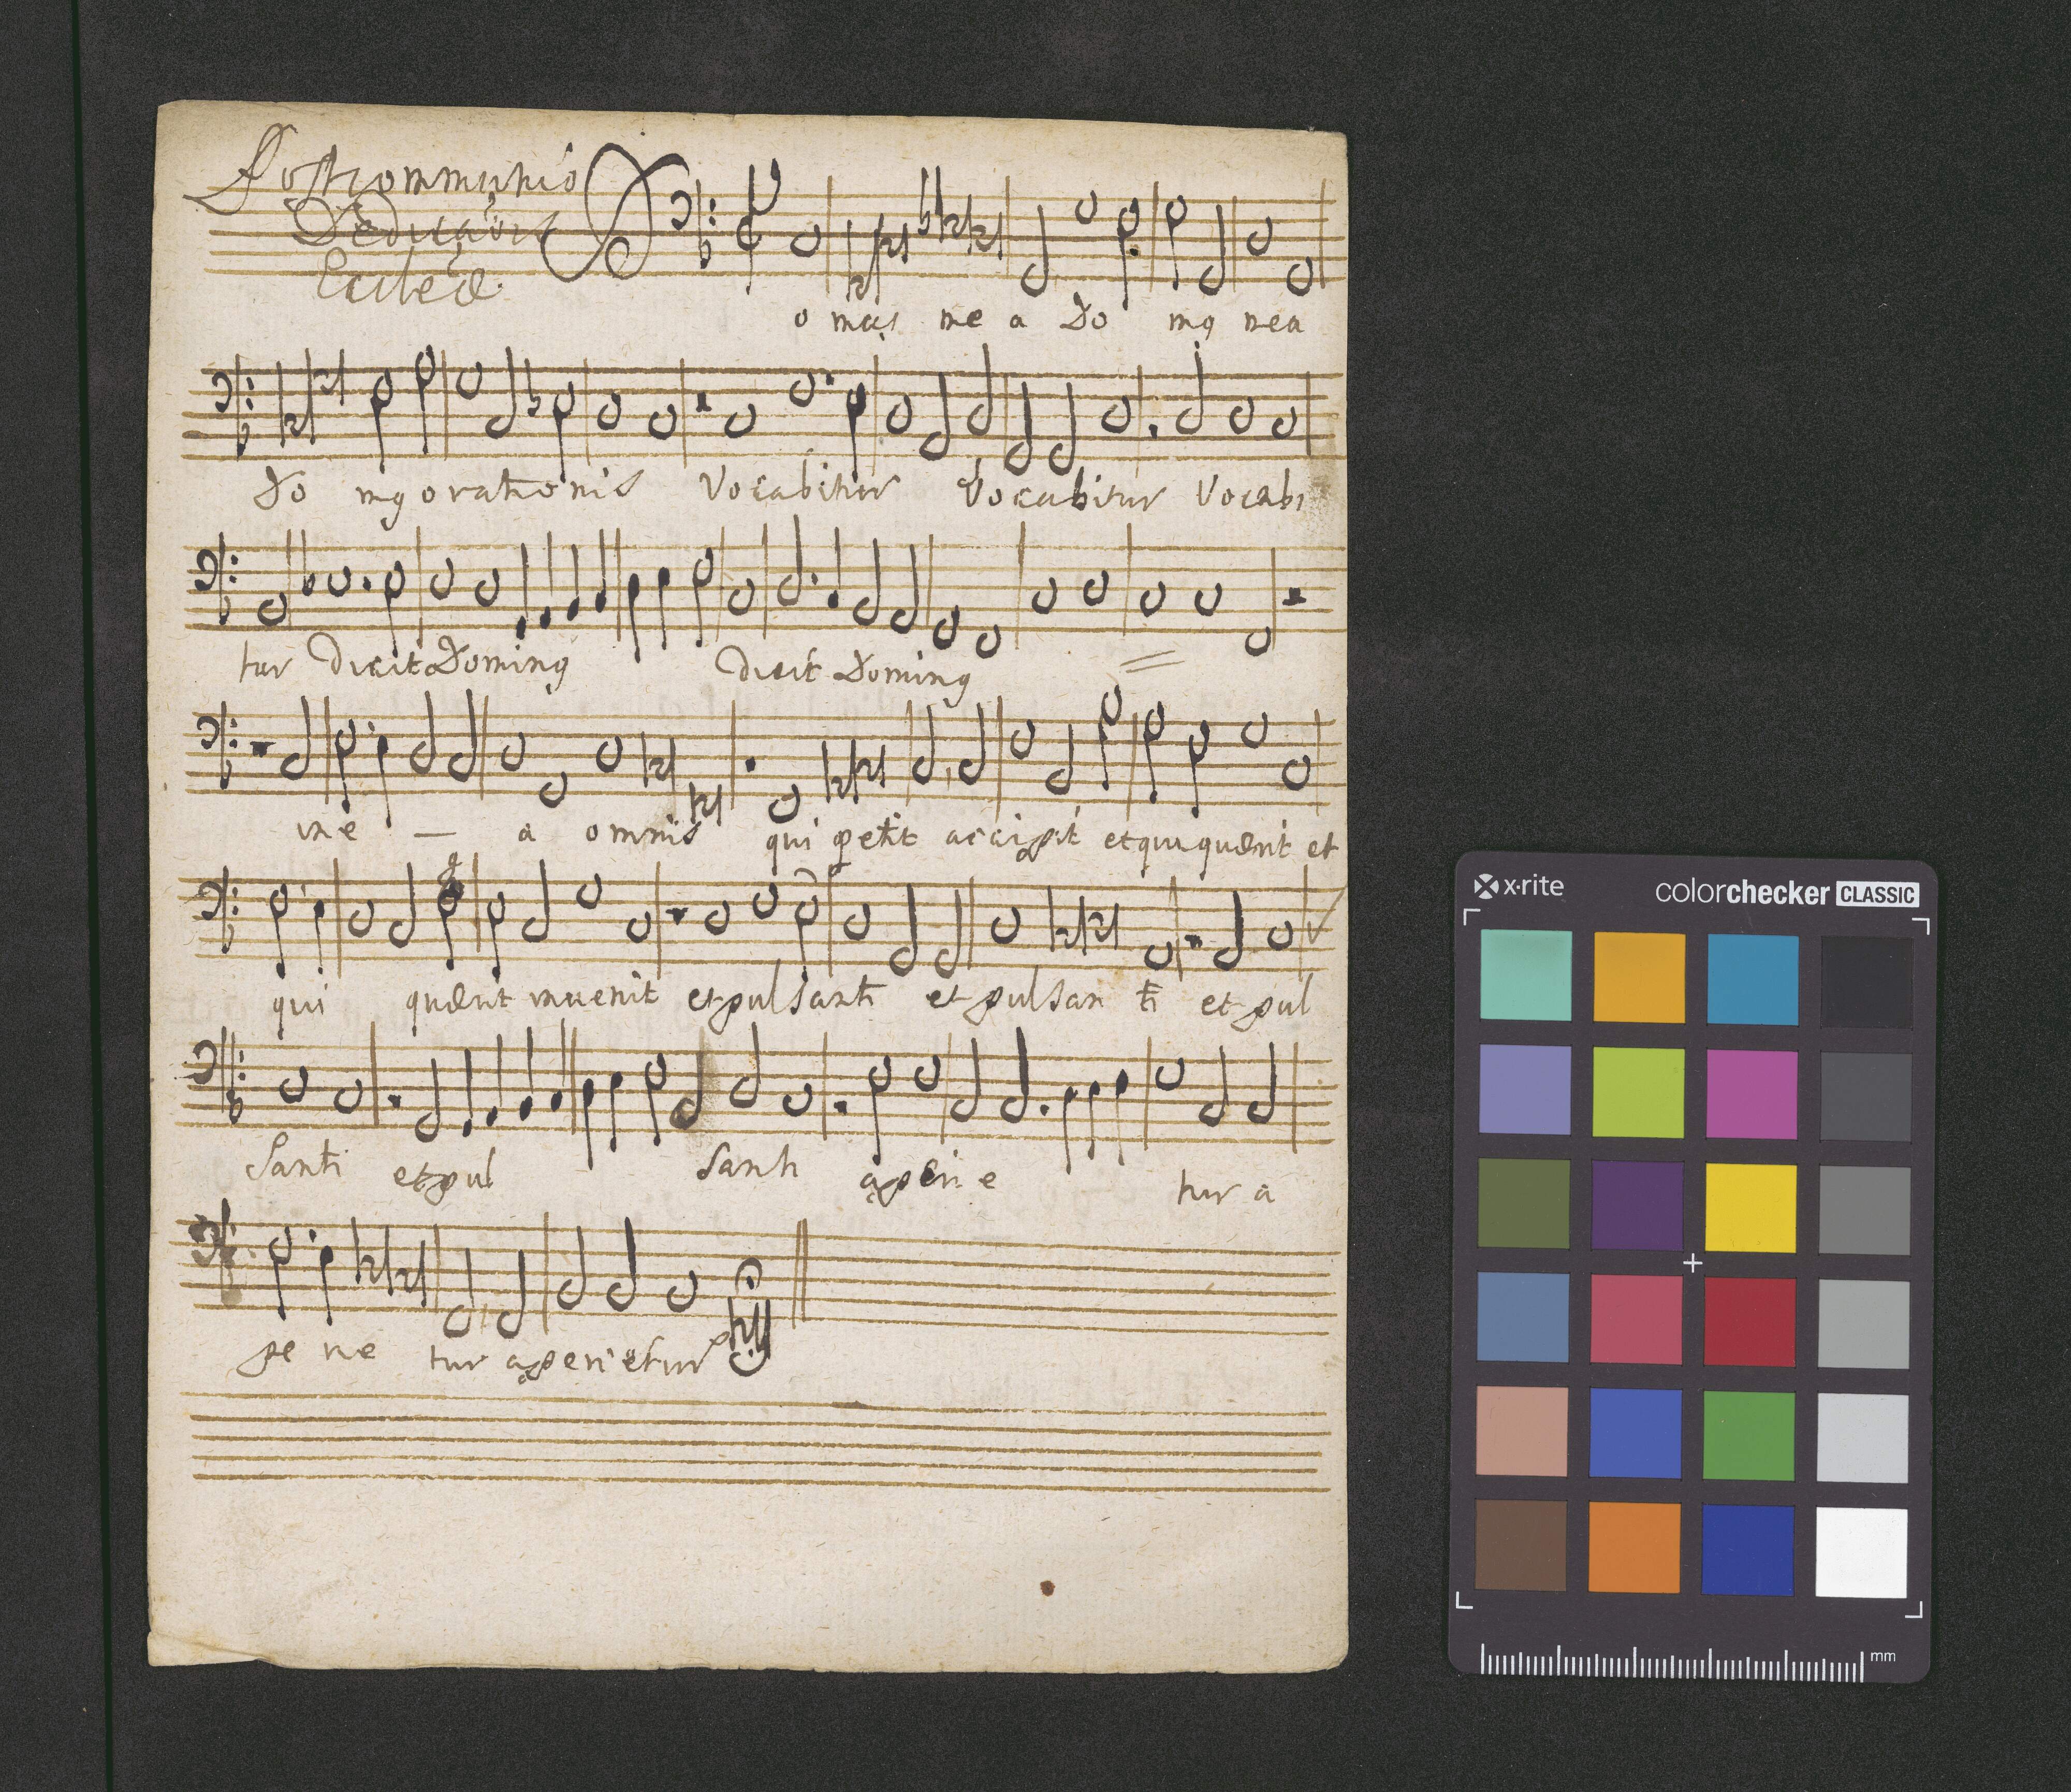 Postcommunio
Dedicaõis
Eccleæ.
Domus me a Do mꝰ mea
Do mꝰ orationis Vocabitur Vocabitur Vocabi
tur dicit Dominꝰ dicit Dominꝰ =
in e — a omnis qui petit accipit et qui quærit et
qui quærit invenit et pulsanti et pulsan ti et pul
Santi et pul santi aperi e tur a
pe rie tur aperietur
x·rite
colorchecker CLASSIC
mm